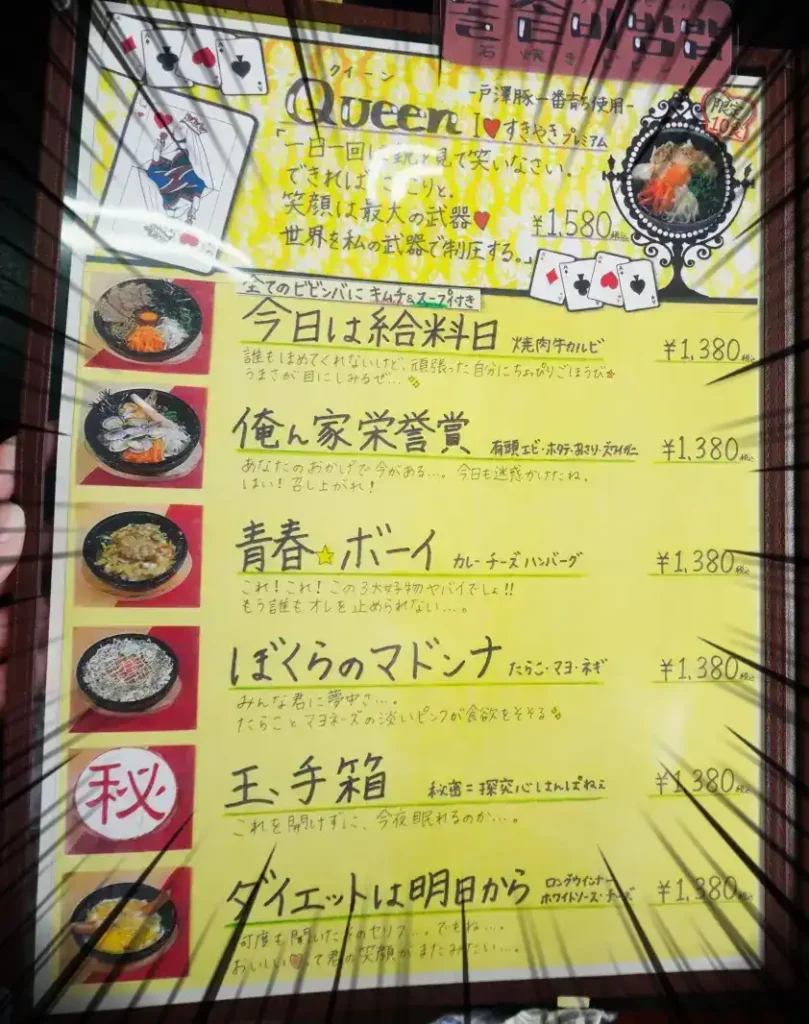 돌솥비빔밥
石焼きビビンバ
クイーン
Queen
-戸澤豚一番育ち使用-
I♥すきやきプレミアム
限定
10食
「一日一回は鏡を見て笑いなさい。
できれば にっこりと。
笑顔は最大の武器♥
世界を私の武器で制圧する。」
¥1,580税込
全てのビビンバに キムチ&スープ付き
今日は給料日 焼肉牛カルビ ¥1,380税込
誰もほめてくれないけど、頑張った自分にちょっぴりごほうび
うまさが目にしみるぜ…
俺ん家栄誉賞 有頭エビ・ホタテ・あさり・ズワイガニ ¥1,380税込
あなたのおかげで今がある…。今日も迷惑かけたね。
はい!召し上がれ!
青春☆ボーイ カレーチーズハンバーグ ¥1,380税込
これ!これ!この3大好物ヤバイでしょ!!
もう誰もオレを止められない…。
ぼくらのマドンナ たらこ・マヨ・ネギ ¥1,380税込
みんな君に夢中さ…。
たらことマヨネーズの淡いピンクが食欲をそそる
秘
玉手箱 秘密=探究心はんぱねぇ ¥1,380税込
これを開けずに、今夜眠れるのか…。
ダイエットは明日から ロングウインナー
ホワイトソース・チーズ ¥1,380税込
何度も聞いたそのセリフ…。でもね…。
おいしい♥って君の笑顔がまたみたい…。